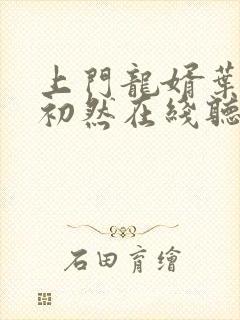 上門龍婿葉
初然在綫聽
石田育繪